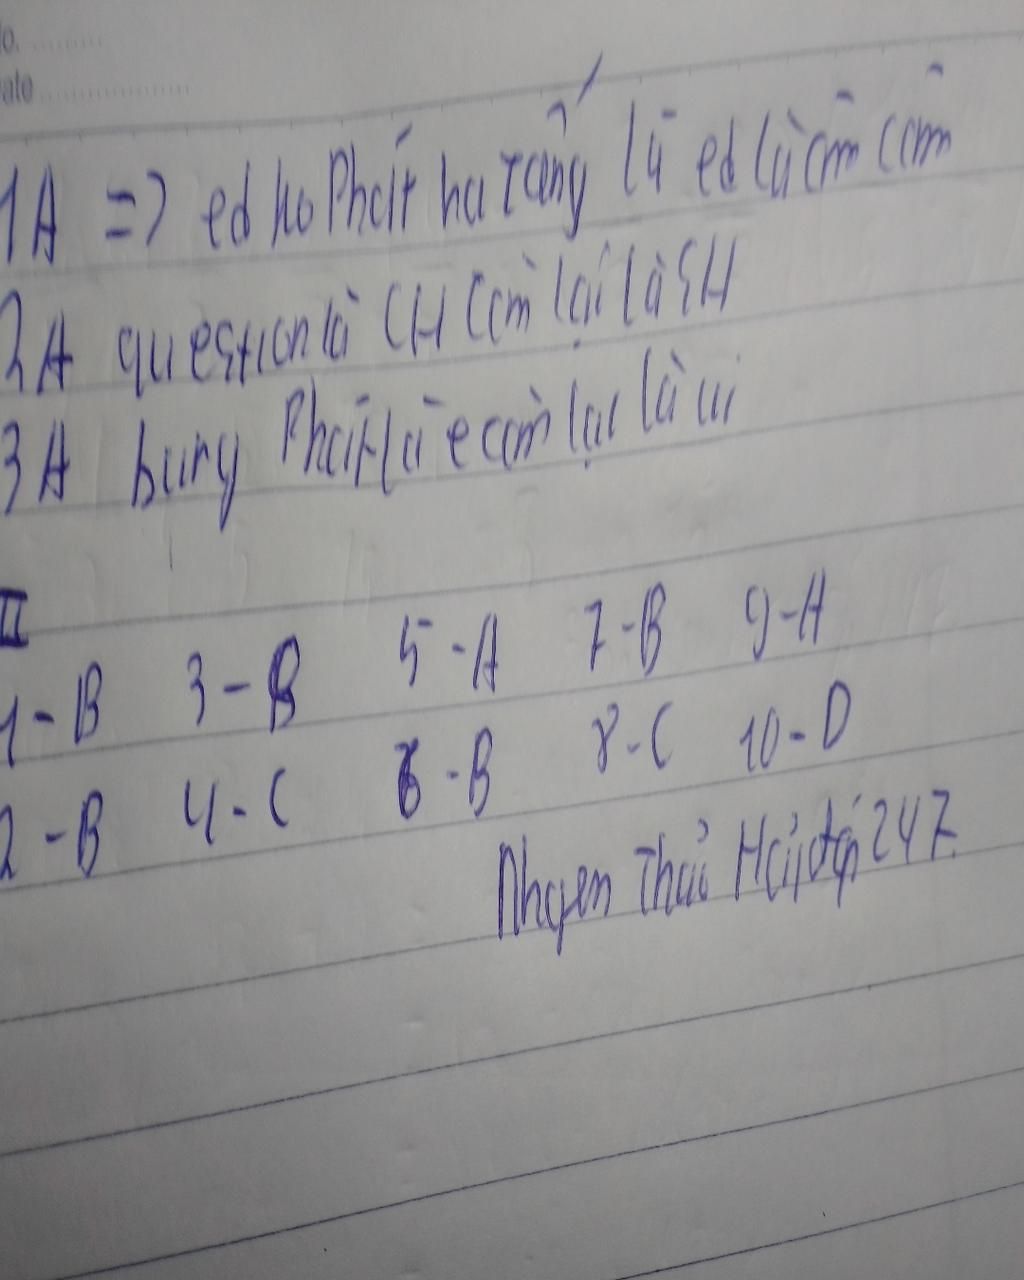 No.
ate
1A => ed ko Phát ra tiếng là ed là âm câm
2A question là CH Còn lại là SH
3A bury Phát là e còn lại là ui
II
1-B 3-B 5-A 7-B 9-A
2-B 4-C 6-B 8-C 10-D
Hỏi đáp 247